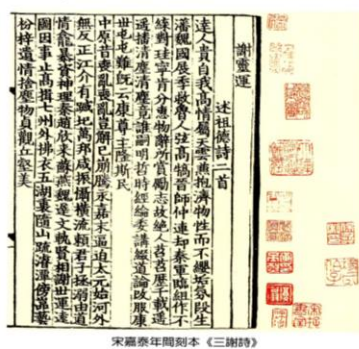 謝靈運
述祖德詩二首
達人貴自我高情屬天雲兼抱濟物性而不纓垢氛段生
藩魏國展季救魯人弦高犒晉師仲連却秦軍臨組作不
緤對珪寧肯分惠物辭所賞勵志故絕人苕苕歷千載遥
遥播清塵清塵竟誰嗣明哲時經綸委講綴道論改服康
世屯屯難既云康尊主隆斯民
中原昔喪亂喪亂豈解已崩騰永嘉末逼迫太元始河外
無反正江介有蹙圮萬邦咸振懾橫流賴君子拯溺由道
情龕暴資神理秦趙欣來蘇燕魏遲文軌賢相謝世運遠
圖因事止高揖七州外拂衣五湖裏隨山疏濬潭傍巖藝
枌梓遺情捨塵物貞觀丘壑美
宋嘉泰年間刻本《三謝詩》